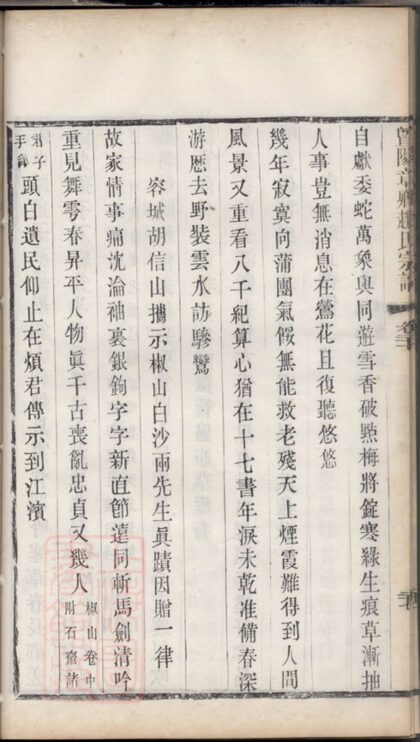 自獻委蛇萬象與同遊雪香破點梅將錠寒綠生痕草漸抽
人事豈無消息在鶯花且復聽悠悠
幾年寂寞向蒲團氣餒無能救老殘天上煙霞難得到人間
風景又重看八千紀算心猶在十七書年淚未乾准備春深
游歷去野裝雲水訪驂鸞
容城胡信山攜示椒山白沙兩先生眞蹟因贈一律
故家情事痛沈淪袖裏銀鉤字字新直節遠同斬馬劍清吟
重見舞雩春昇平人物眞千古喪亂忠貞又幾人椒山卷中附石齋諸
君子手頭白遺民仰止在煩君傳示到江濱